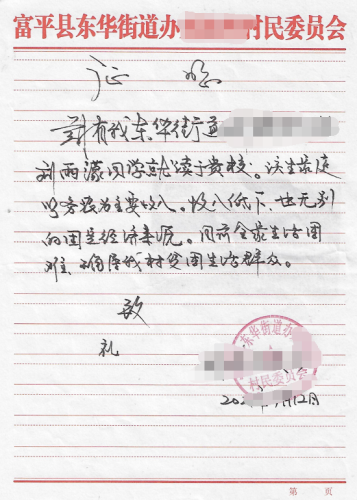 富平县东华街道办村民委员会
证 明
兹有我东华街道
刘雨濛同学就读于贵校。该生家庭
以务农为主要收入。收入低下、也无别
的固定经济来源。目前全家生活困
难、确属我村贫困生活群众。
致
礼
东华街道办
村民委员会
202 年 月12日
第 页